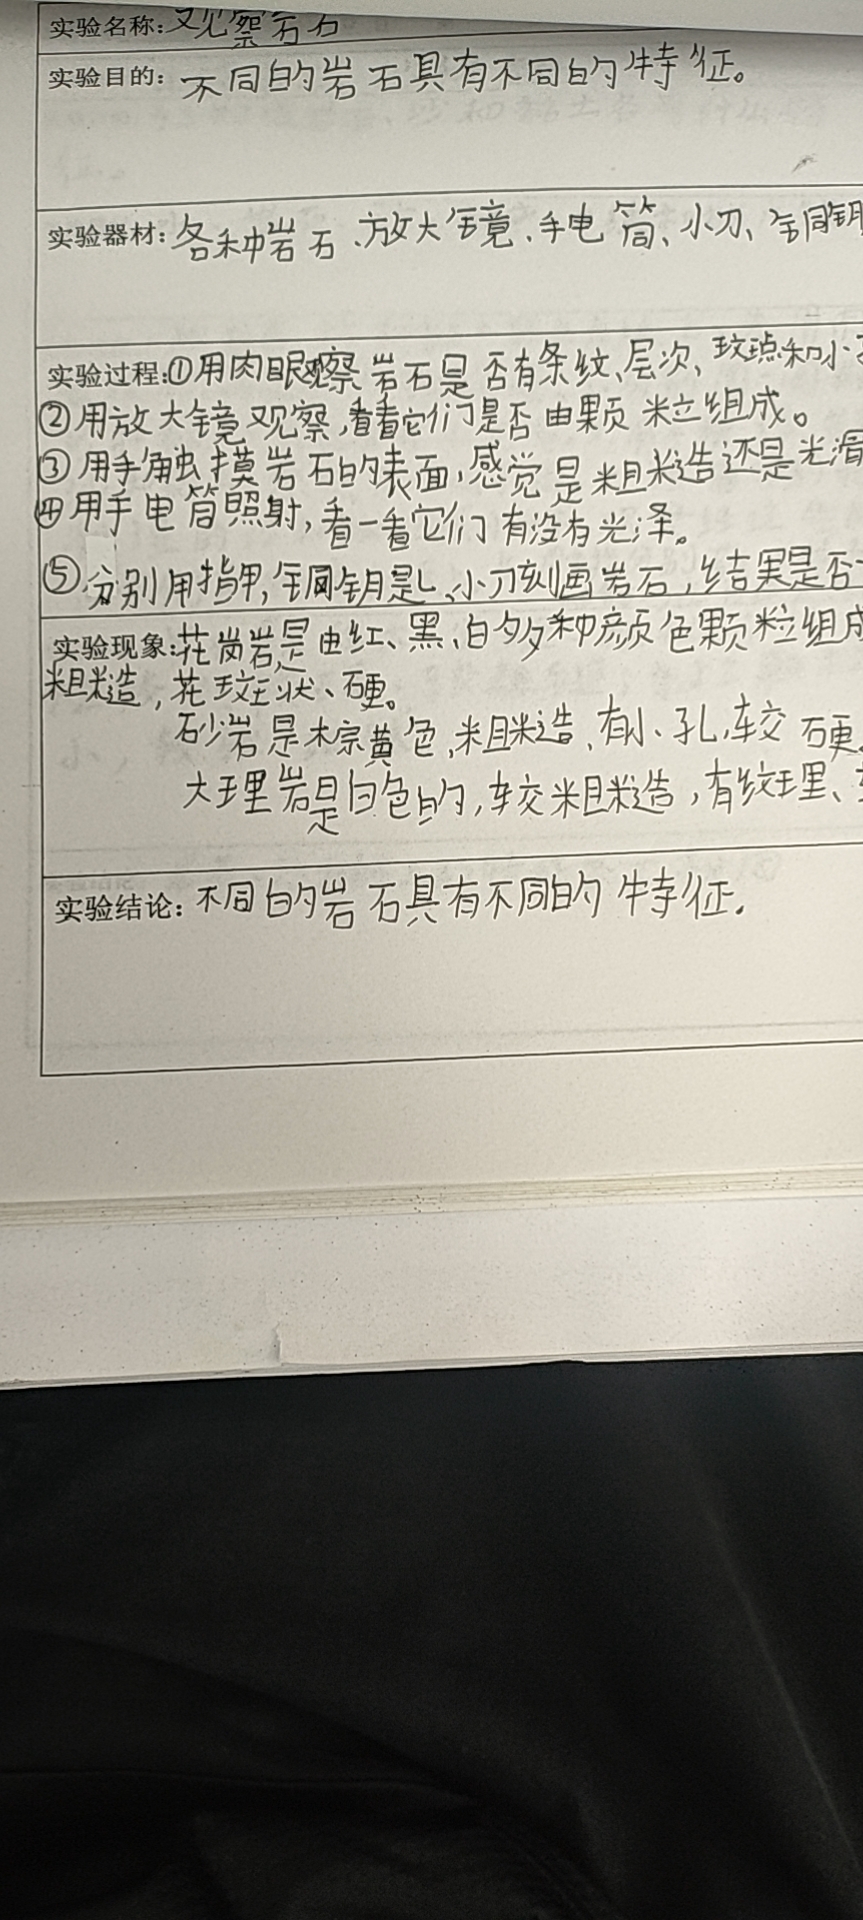 实验名称:观察岩石
实验目的:不同的岩石具有不同的特征。
实验器材:各种岩石、放大镜、手电筒、小刀、铜钥
实验过程:①用肉眼观察岩石是否有条纹、层次、斑点和小
②用放大镜观察,看看它们是否由颗粒组成。
③用手触摸岩石的表面,感觉是粗糙还是光滑
④用手电筒照射,看一看它们有没有光泽。
⑤分别用指甲,铜钥匙、小刀刻画岩石,结果是否
实验现象:花岗岩是由红、黑、白多种颜色颗粒组成
粗糙,花斑状、硬。
砂岩是棕黄色,粗糙、有小孔,较硬。
大理岩是白色的,较粗糙,有纹理、
实验结论:不同的岩石具有不同的特征.